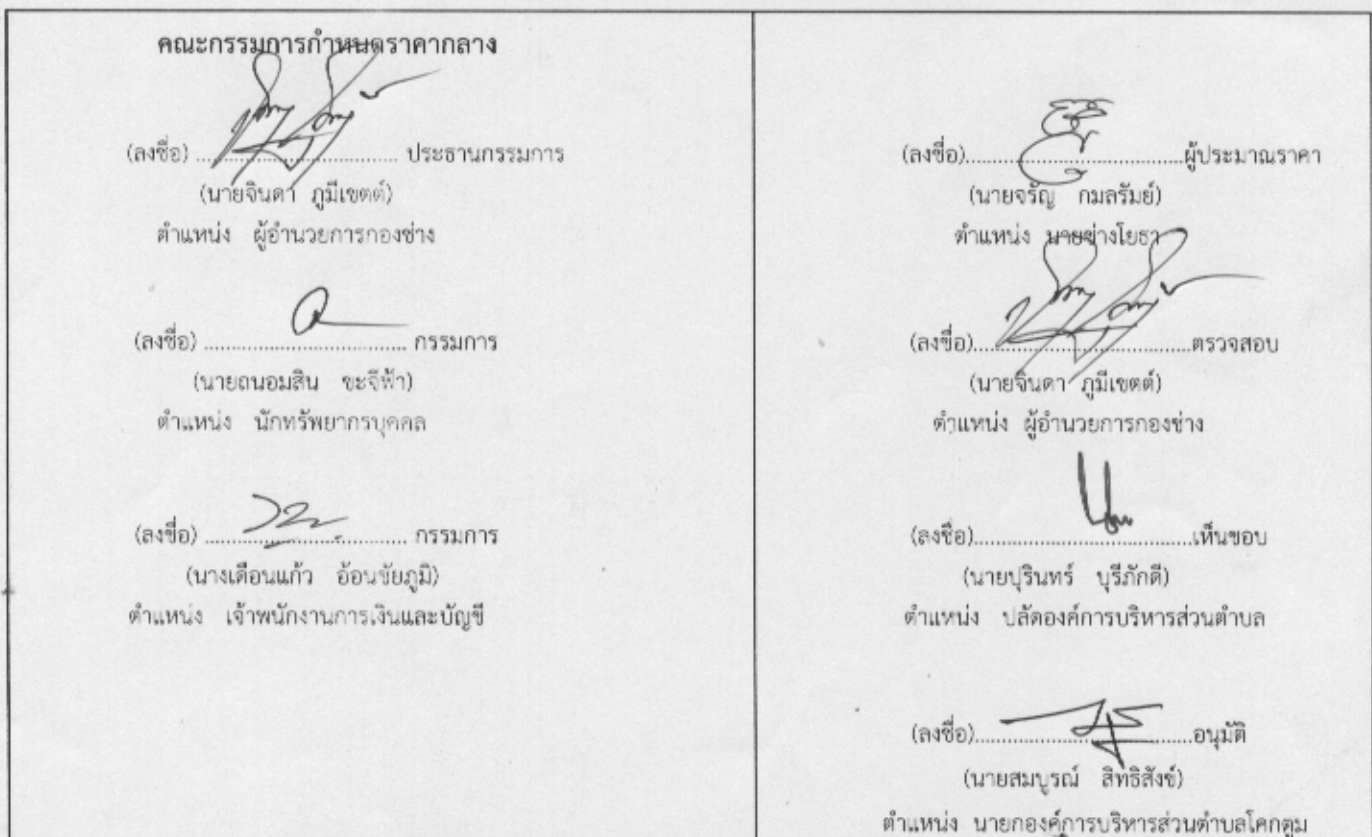 คณะกรรมการกำหนดราคากลาง
(ลงชื่อ) .................................. ประธานกรรมการ
(นายจินดา ภูมีเขตต์)
ตำแหน่ง ผู้อำนวยการกองช่าง
(ลงชื่อ) .................................. กรรมการ
(นายถนอมสิน ชะจีฟ้า)
ตำแหน่ง นักทรัพยากรบุคคล
(ลงชื่อ) .................................. กรรมการ
(นางเดือนแก้ว อ้อนชัยภูมิ)
ตำแหน่ง เจ้าพนักงานการเงินและบัญชี
(ลงชื่อ)....................................ผู้ประมาณราคา
(นายจรัญ กมลรัมย์)
ตำแหน่ง นายช่างโยธา
(ลงชื่อ)....................................ตรวจสอบ
(นายจินดา ภูมีเขตต์)
ตำแหน่ง ผู้อำนวยการกองช่าง
(ลงชื่อ)....................................เห็นชอบ
(นายปุรินทร์ บุรีภักดี)
ตำแหน่ง ปลัดองค์การบริหารส่วนตำบล
(ลงชื่อ)....................................อนุมัติ
(นายสมบูรณ์ สิทธิสังข์)
ตำแหน่ง นายกองค์การบริหารส่วนตำบลโคกตูม